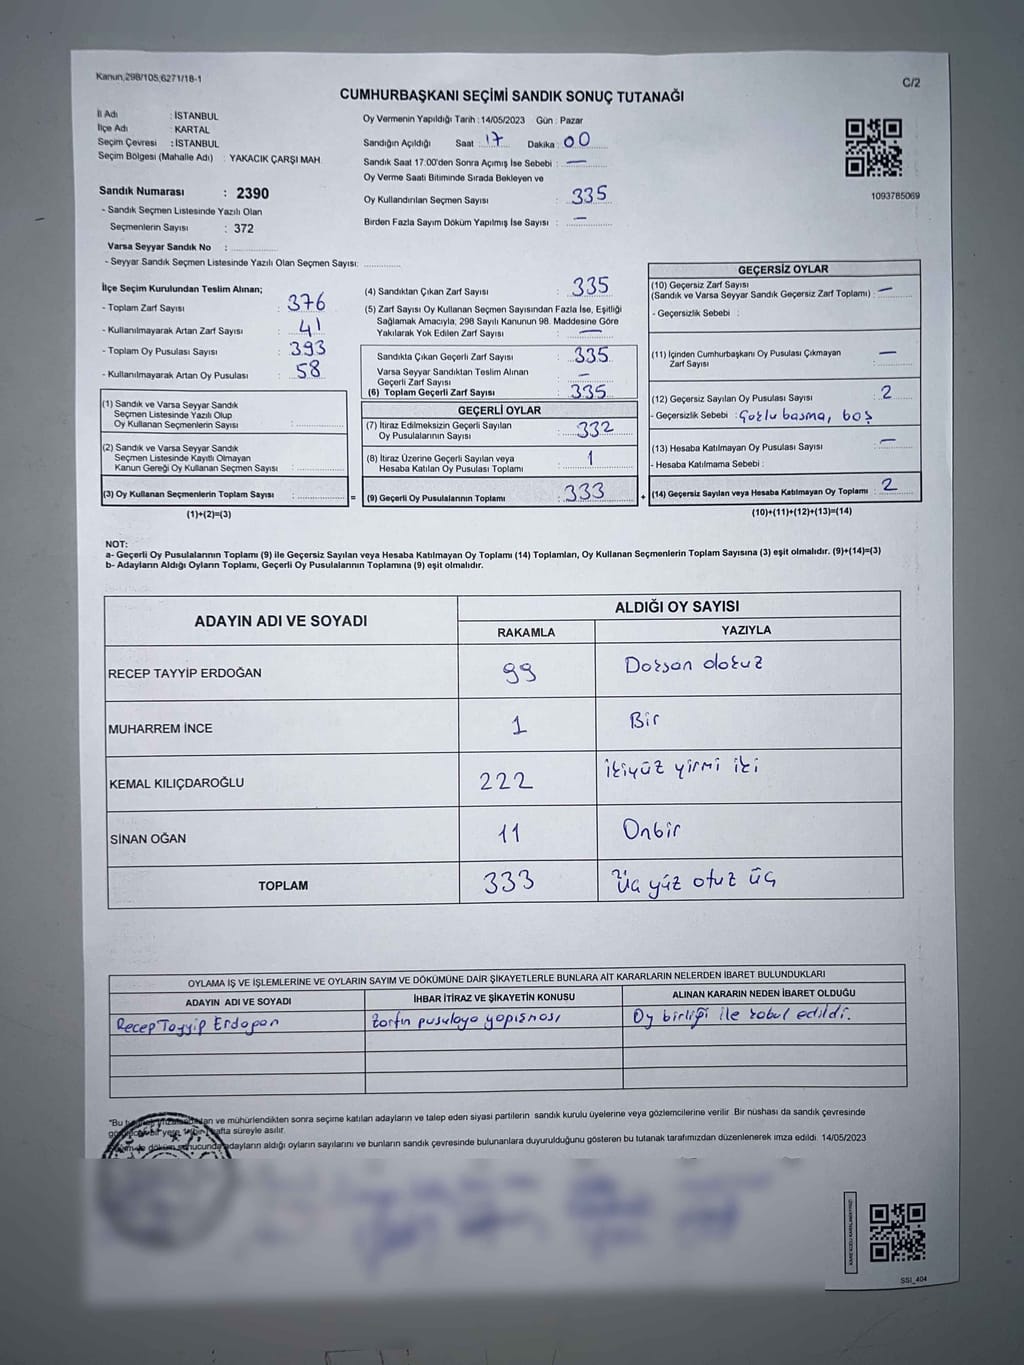 Kanun,298/105;6271/18-1
C/2
CUMHURBAŞKANI SEÇİMİ SANDIK SONUÇ TUTANAĞI
İl Adı : İSTANBUL
İlçe Adı : KARTAL
Seçim Çevresi : İSTANBUL
Seçim Bölgesi (Mahalle Adı) : YAKACIK ÇARŞI MAH.
Sandık Numarası : 2390
- Sandık Seçmen Listesinde Yazılı Olan
Seçmenlerin Sayısı : 372
Varsa Seyyar Sandık No :
- Seyyar Sandık Seçmen Listesinde Yazılı Olan Seçmen Sayısı:
Oy Vermenin Yapıldığı Tarih : 14/05/2023 Gün : Pazar
Sandığın Açıldığı Saat : 17 Dakika : 00
Sandık Saat 17:00'den Sonra Açımış İse Sebebi : —
Oy Verme Saati Bitiminde Sırada Bekleyen ve
Oy Kullandırılan Seçmen Sayısı : 335
Birden Fazla Sayım Döküm Yapılmış İse Sayısı : —
1093785069
İlçe Seçim Kurulundan Teslim Alınan;
- Toplam Zarf Sayısı : 376
- Kullanılmayarak Artan Zarf Sayısı : 41
- Toplam Oy Pusulası Sayısı : 393
- Kullanılmayarak Artan Oy Pusulası : 58
(1) Sandık ve Varsa Seyyar Sandık
Seçmen Listesinde Yazılı Olup
Oy Kullanan Seçmenlerin Sayısı :
(2) Sandık ve Varsa Seyyar Sandık
Seçmen Listesinde Kayıtlı Olmayan
Kanun Gereği Oy Kullanan Seçmen Sayısı :
(3) Oy Kullanan Seçmenlerin Toplam Sayısı :
(1)+(2)=(3)
=
(4) Sandıktan Çıkan Zarf Sayısı : 335
(5) Zarf Sayısı Oy Kullanan Seçmen Sayısından Fazla İse, Eşitliği
Sağlamak Amacıyla, 298 Sayılı Kanunun 98. Maddesine Göre
Yakılarak Yok Edilen Zarf Sayısı : —
Sandıkta Çıkan Geçerli Zarf Sayısı : 335
Varsa Seyyar Sandıktan Teslim Alınan
Geçerli Zarf Sayısı : —
(6) Toplam Geçerli Zarf Sayısı : 335
GEÇERLİ OYLAR
(7) İtiraz Edilmeksizin Geçerli Sayılan
Oy Pusulalarının Sayısı : 332
(8) İtiraz Üzerine Geçerli Sayılan veya
Hesaba Katılan Oy Pusulası Toplamı : 1
(9) Geçerli Oy Pusulalarının Toplamı : 333
+
GEÇERSİZ OYLAR
(10) Geçersiz Zarf Sayısı
(Sandık ve Varsa Seyyar Sandık Geçersiz Zarf Toplamı) : —
- Geçersizlik Sebebi :
(11) İçinden Cumhurbaşkanı Oy Pusulası Çıkmayan
Zarf Sayısı : —
(12) Geçersiz Sayılan Oy Pusulası Sayısı : 2
- Geçersizlik Sebebi : Gozlu basma, boş
(13) Hesaba Katılmayan Oy Pusulası Sayısı : —
- Hesaba Katılmama Sebebi :
(14) Geçersiz Sayılan veya Hesaba Katılmayan Oy Toplamı : 2
(10)+(11)+(12)+(13)=(14)
NOT:
a- Geçerli Oy Pusulalarının Toplamı (9) ile Geçersiz Sayılan veya Hesaba Katılmayan Oy Toplamı (14) Toplamları, Oy Kullanan Seçmenlerin Toplam Sayısına (3) eşit olmalıdır. (9)+(14)=(3)
b- Adayların Aldığı Oyların Toplamı, Geçerli Oy Pusulalarının Toplamına (9) eşit olmalıdır.
ADAYIN ADI VE SOYADI
ALDIĞI OY SAYISI
RAKAMLA YAZIYLA
RECEP TAYYİP ERDOĞAN 99 Doksan dokuz
MUHARREM İNCE 1 Bir
KEMAL KILIÇDAROĞLU 222 İkiyüz yirmi iki
SİNAN OĞAN 11 Onbir
TOPLAM 333 Üç yüz otuz üç
OYLAMA İŞ VE İŞLEMLERİNE VE OYLARIN SAYIM VE DÖKÜMÜNE DAİR ŞİKAYETLERLE BUNLARA AİT KARARLARIN NELERDEN İBARET BULUNDUKLARI
ADAYIN ADI VE SOYADI İHBAR İTİRAZ VE ŞİKAYETİN KONUSU ALINAN KARARIN NEDEN İBARET OLDUĞU
Recep Tayyip Erdoğan Zarfın pusulaya yapışması Oy birliği ile kabul edildi.
ve mühürlendikten sonra seçime katılan adayların ve talep eden siyasi partilerin sandık kurulu üyelerine veya gözlemcilerine verilir. Bir nüshası da sandık çevresinde
hafta süreyle asılır.
adayların aldığı oyların sayılarını ve bunların sandık çevresinde bulunanlara duyurulduğunu gösteren bu tutanak tarafımızdan düzenlenerek imza edildi. 14/05/2023
SSI_404